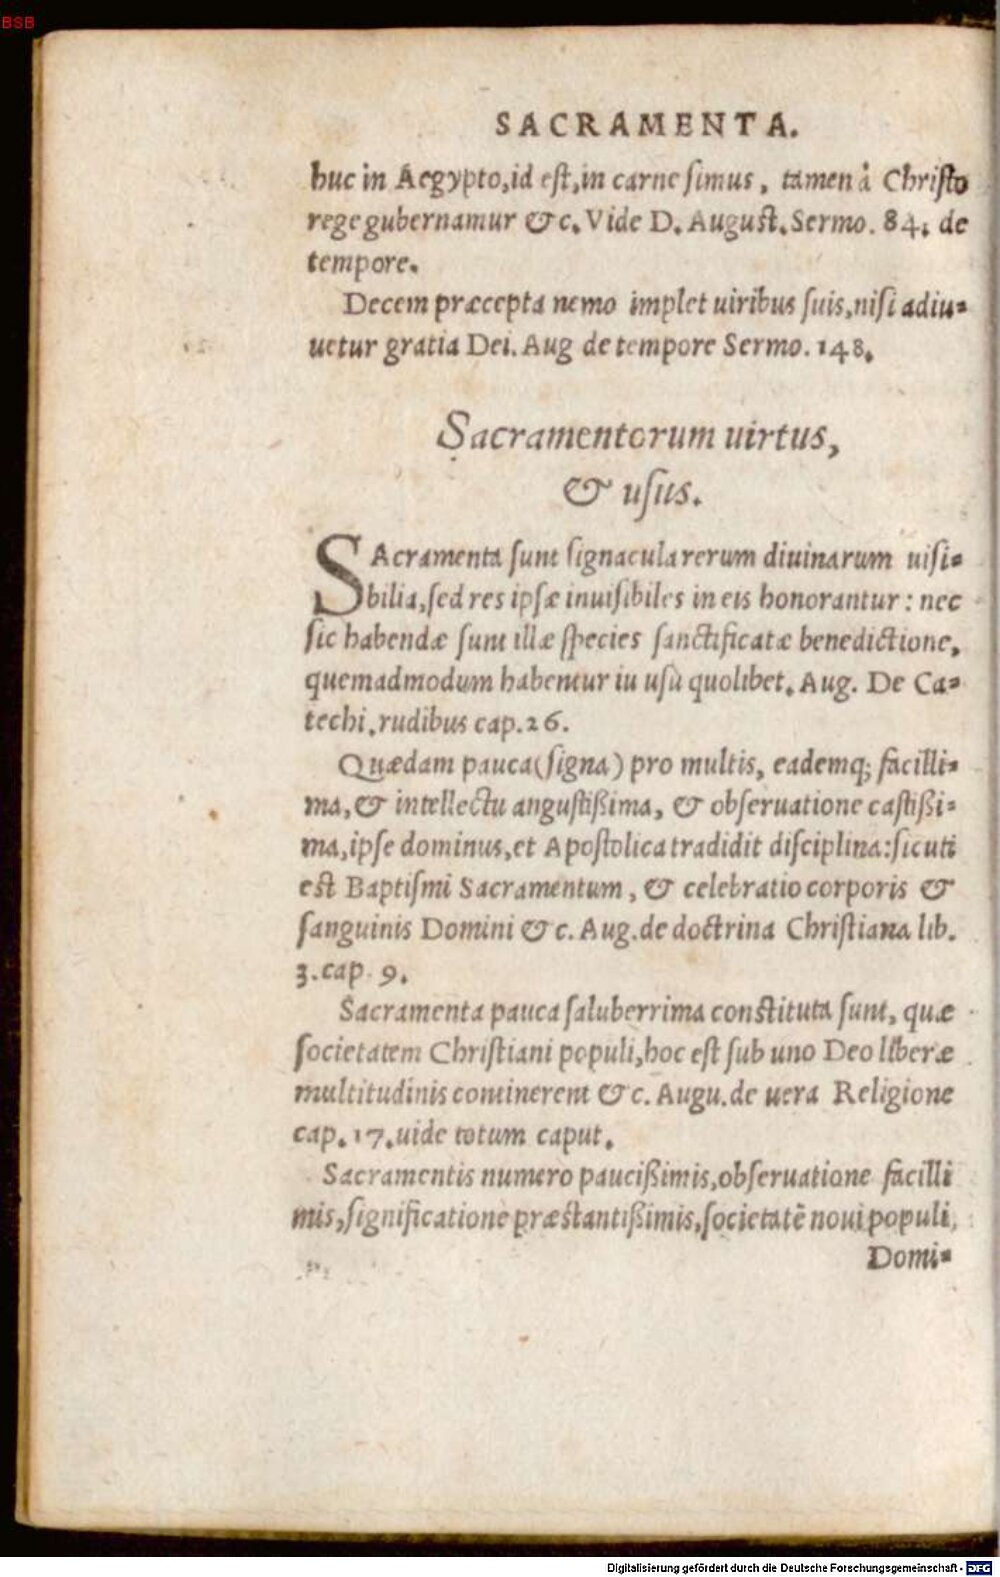 BSB
SACRAMENTA.
huc in Aegypto, id est, in carne simus, tamen à Christo
rege gubernamur &c. Vide D. August. Sermo. 84. de
tempore.
Decem præcepta nemo implet uiribus suis, nisi adiu-
uetur gratia Dei. Aug de tempore Sermo. 148.
Sacramentorum uirtus,
& usus.
SAcramenta sunt signacula rerum diuinarum uisi-
bilia, sed res ipsæ inuisibiles in eis honorantur: nec
sic habendæ sunt illæ species sanctificatæ benedictione,
quemadmodum habentur in usu quolibet. Aug. De Ca-
techi. rudibus cap. 26.
Quædam pauca (signa) pro multis, eademq; facilli-
ma, & intellectu angustißima, & obseruatione castißi-
ma, ipse dominus, et Apostolica tradidit disciplina: sicuti
est Baptismi Sacramentum, & celebratio corporis &
sanguinis Domini &c. Aug. de doctrina Christiana lib.
3. cap. 9.
Sacramenta pauca saluberrima constituta sunt, quæ
societatem Christiani populi, hoc est sub uno Deo liberæ
multitudinis continerent &c. Augu. de uera Religione
cap. 17. uide totum caput.
Sacramentis numero paucißimis, obseruatione facilli
mis, significatione præstantißimis, societatē noui populi,
Domi-
Digitalisierung gefördert durch die Deutsche Forschungsgemeinschaft - DFG